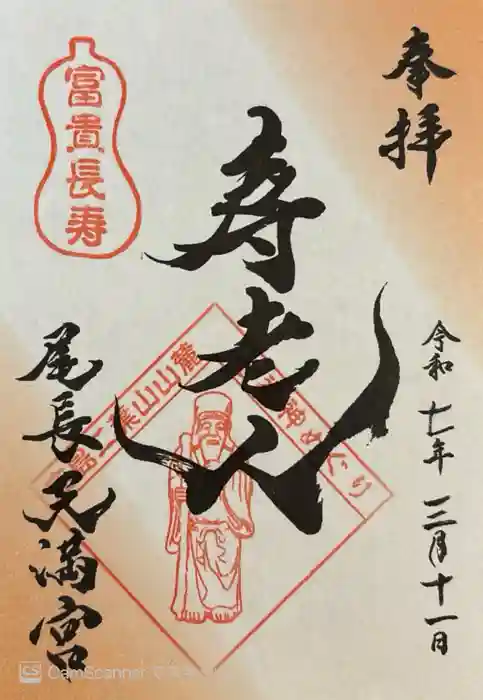 奉拝
令和七年三月十一日
寿老人
富貴長寿
二葉山山麓
めぐり
尾長天満宮
CS CamScanner